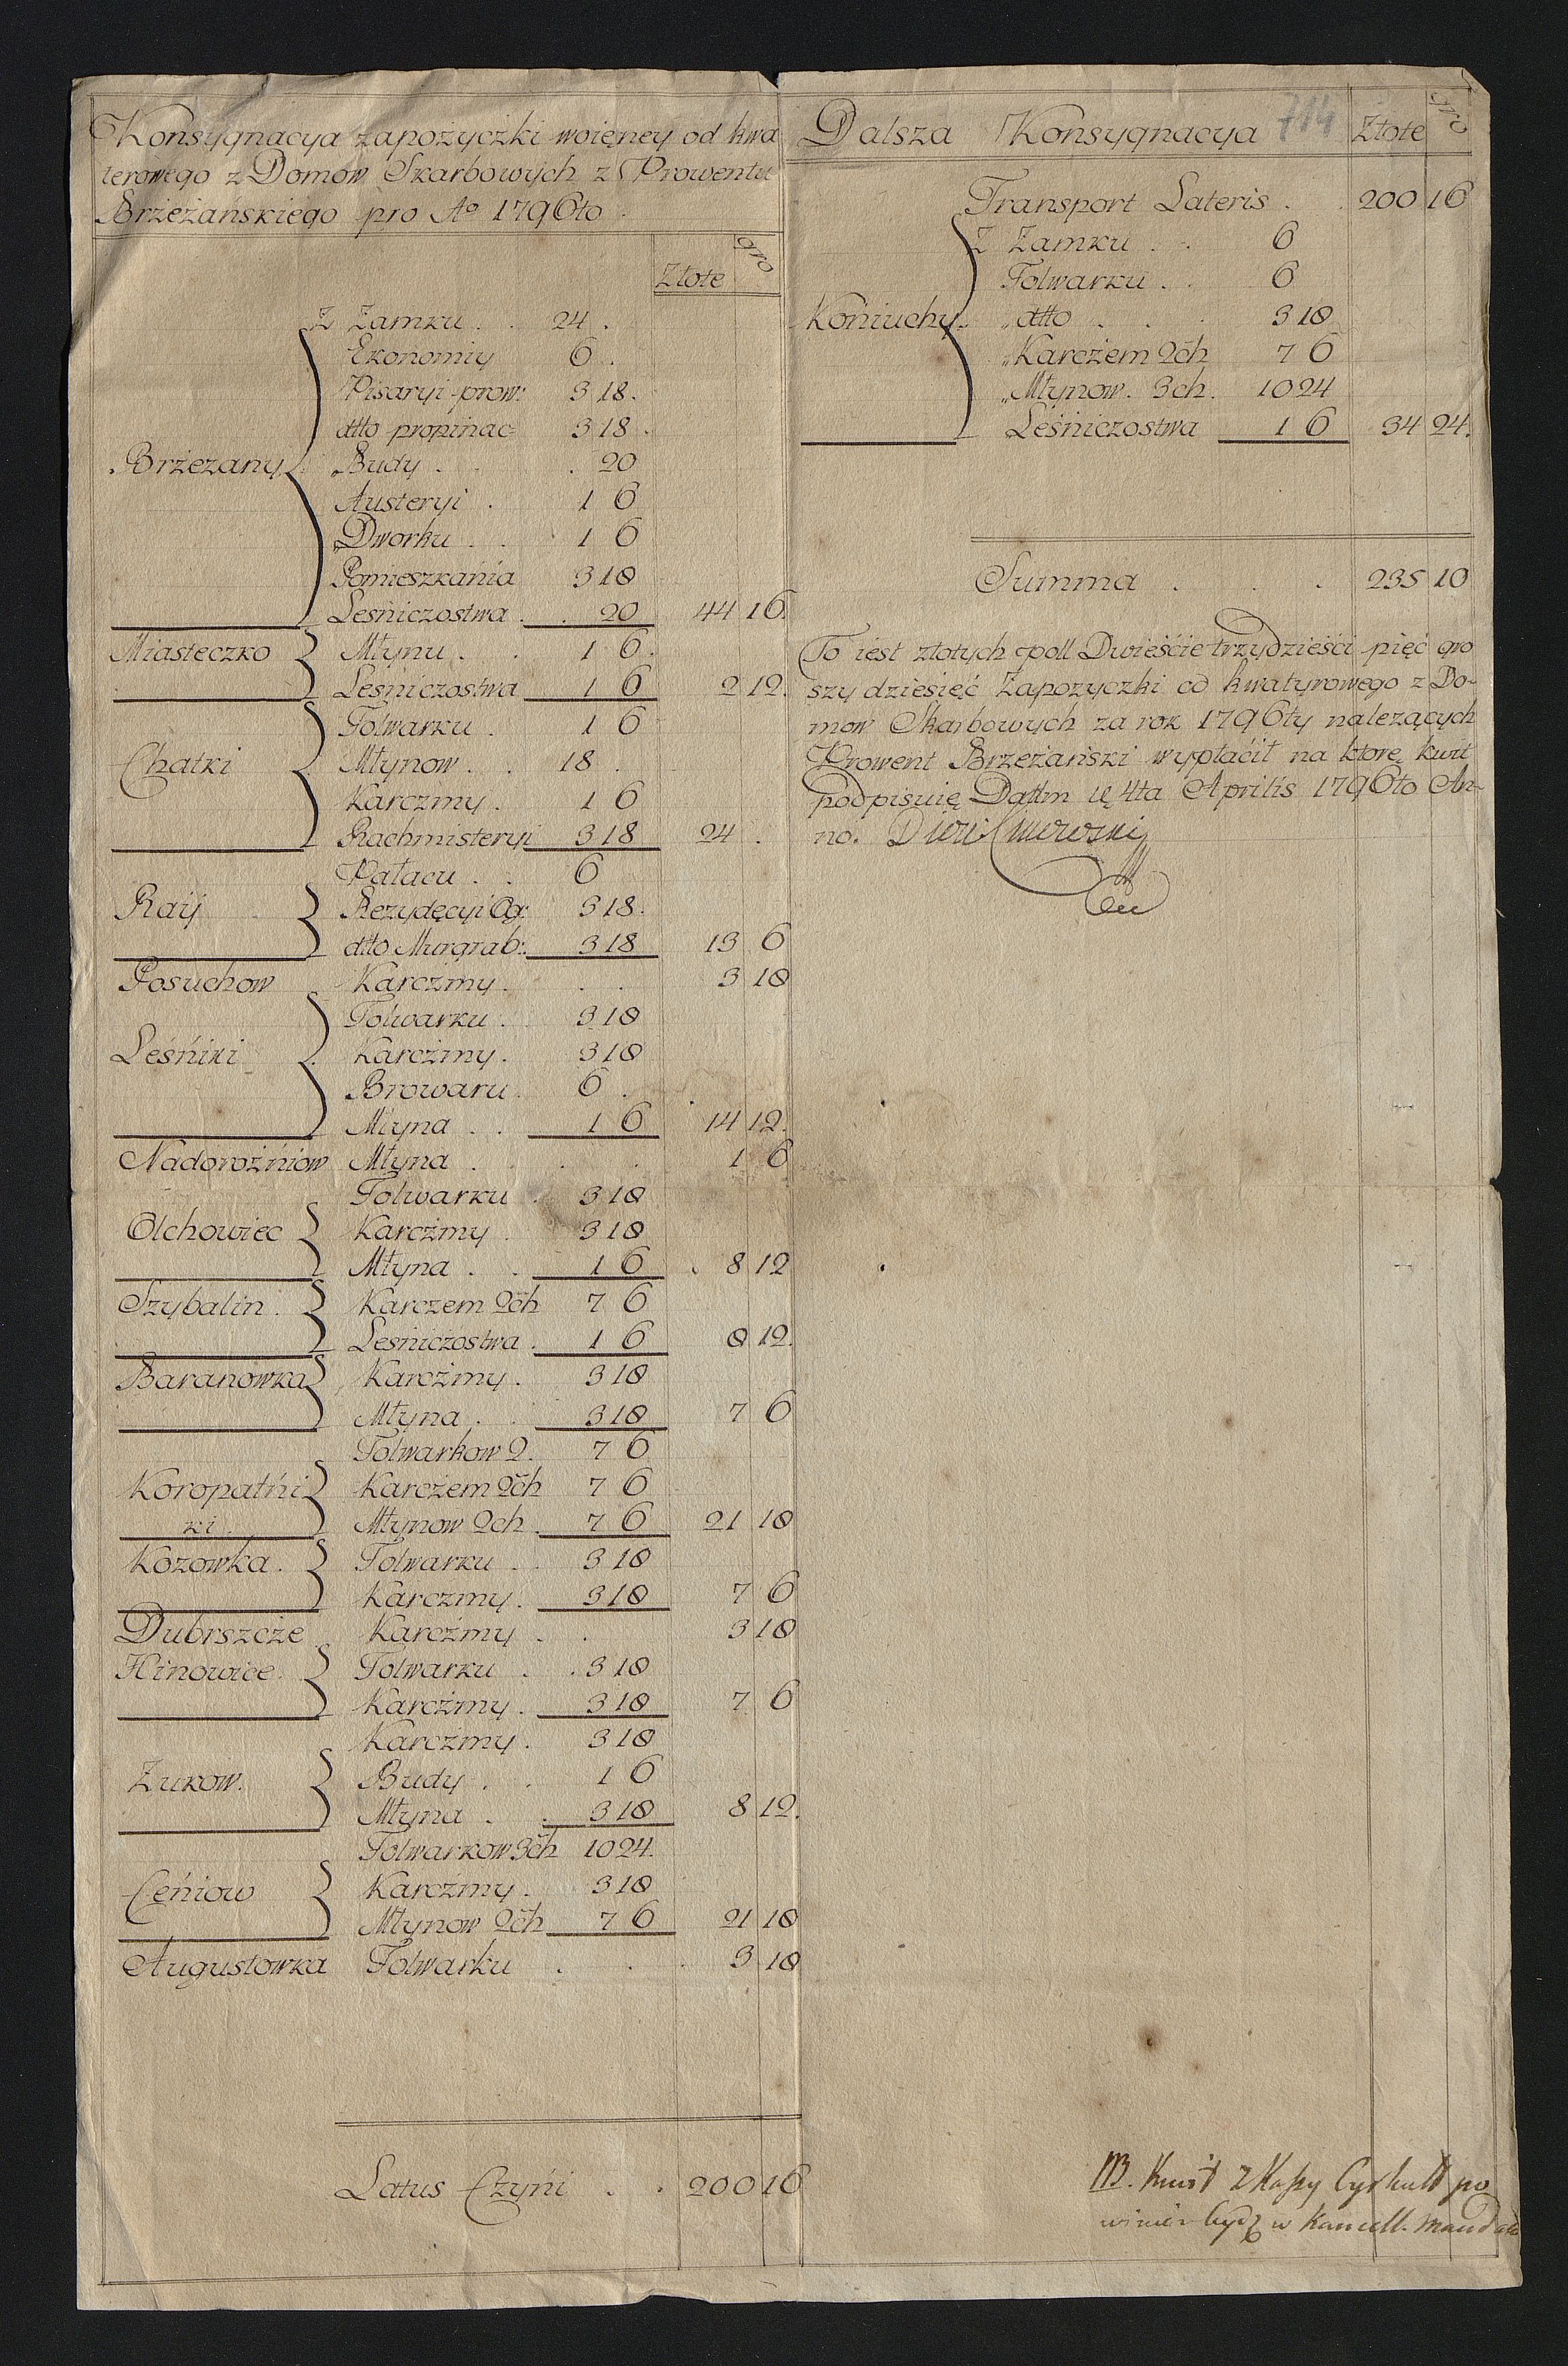 Konsygnacya zapożyczki woięney od kwa
terowego z Domow Skarbowych z Prowentu
Brzeżańskiego pro Aº 1796to.
Złote gro
Z Zamku . . 24 .
Ekonomiy 6 .
Pisaryi prow: 3 18.
dtto propinac= 3 18.
Brzezany „Budy . . . 20
Austeryi . 1 6
„Dworku . . 1 6
Pomieszkańia 3 18
Leśniczostwa . . 20 44 16.
Miasteczko Młynu . . 1 6.
Lesniczostwa 1 6 2 12.
Folwarku . 1 6
Chatki Młynow . . 18 .
Karczmy . 1 6
Rachmisteryi 3 18 24 .
Pałacu . . 6
Raÿ Rezydęcyi Og: 3 18.
dtto Murgrab: 3 18 13 6
Posuchow Karcżmy . . . 3 18
Folwarku . 3 18
Leśńiki Karcżmy . 3 18
Browaru 6 .
Młyna . . 1 6 14 12.
Nadorożniow Młyna . . . 1 6
Folwarku . 3 18
Olchowiec Karcżmy . 3 18
Młyna . . 1 6 . 8 12
Szybalin . Karczem 2ch 7 6
Lesniczostwa . 1 6 8 12.
Baranowka Karcżmy . 3 18
Młyna . . 3 18 7 6
Folwarkow 2. 7 6
Koropatńi Karcżem 2ch 7 6
ki . Młynow 2ch . 7 6 21 18
Kozowka . Folwarku . . 3 18
Karczmy . 3 18 7 6
Dubrszcże Karcźmy . . 3 18
Hinowice . Folwarku . . 3 18
Karcżmy . 3 18 7 6
Karcżmy . 3 18
Zukow. Budy . . 1 6
Młyna . . 3 18 8 12.
Folwarkow 3ch 10 24.
Ceńiow Karcźmy . 3 18
Młynow 2ch 7 6 21 18
Augustowka Folwarku . . . 3 18
Latus Czyńi . . 200 16
Dalsza Konsygnacya 714 Złote gro
Transport Lateris . . 200 16
Z Zamku . . 6
Folwarku . . 6
Końiuchy . „dtto . . . 3 18
„Karcżem 2ch 7 6
„Młynow . 3ch . 10 24
Leśniczostwa 1 6 34 24.
Summa . . . 235 10
To iest złotych poll Dwieście trzydzieści pięć gro
szy dziesięć Zapozyczki od kwatyrowego z Do-
mow Skarbowych za rok 1796ty należących
Prowent Brzeżański wypłacił na ktorę kwit
podpisuię Dattm die 4ta Aprilis 1796to An-
no.
NB. Kwit z Kassy Cyrkull po
winien bydz w Kancell.